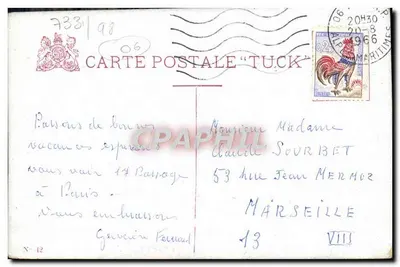 7331/98
06
CARTE POSTALE "TUCK"
20H30
20-8
1966
ALPES MARITIMES
Passons de bonnes
vacances espérons
vous voir 17 Passage
à Paris.
vous embrassons
N° 12
Monsieur Madame
Claude SOURBET
53 Rue Jean MERMOZ
MARSEILLE
13 VIII
CPAPHIL